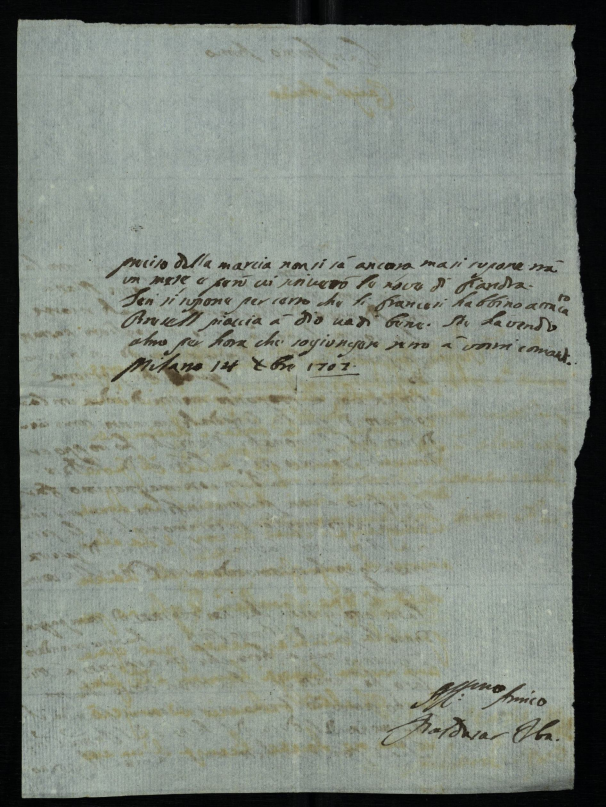 preciso della marcia non si sà ancora ma si supone frà
un mese e però vi scriverò le nove di fiandra.
Ieri si supone per certo che li francesi habbino attacato
Brusell piaccia à Dio vadi bene. Ne havendo
altro per hora che sogiungere resto à vostri comandi.
Milano 14 Xbre 1707.
Aff.mo Amico
Baldasar Erba.